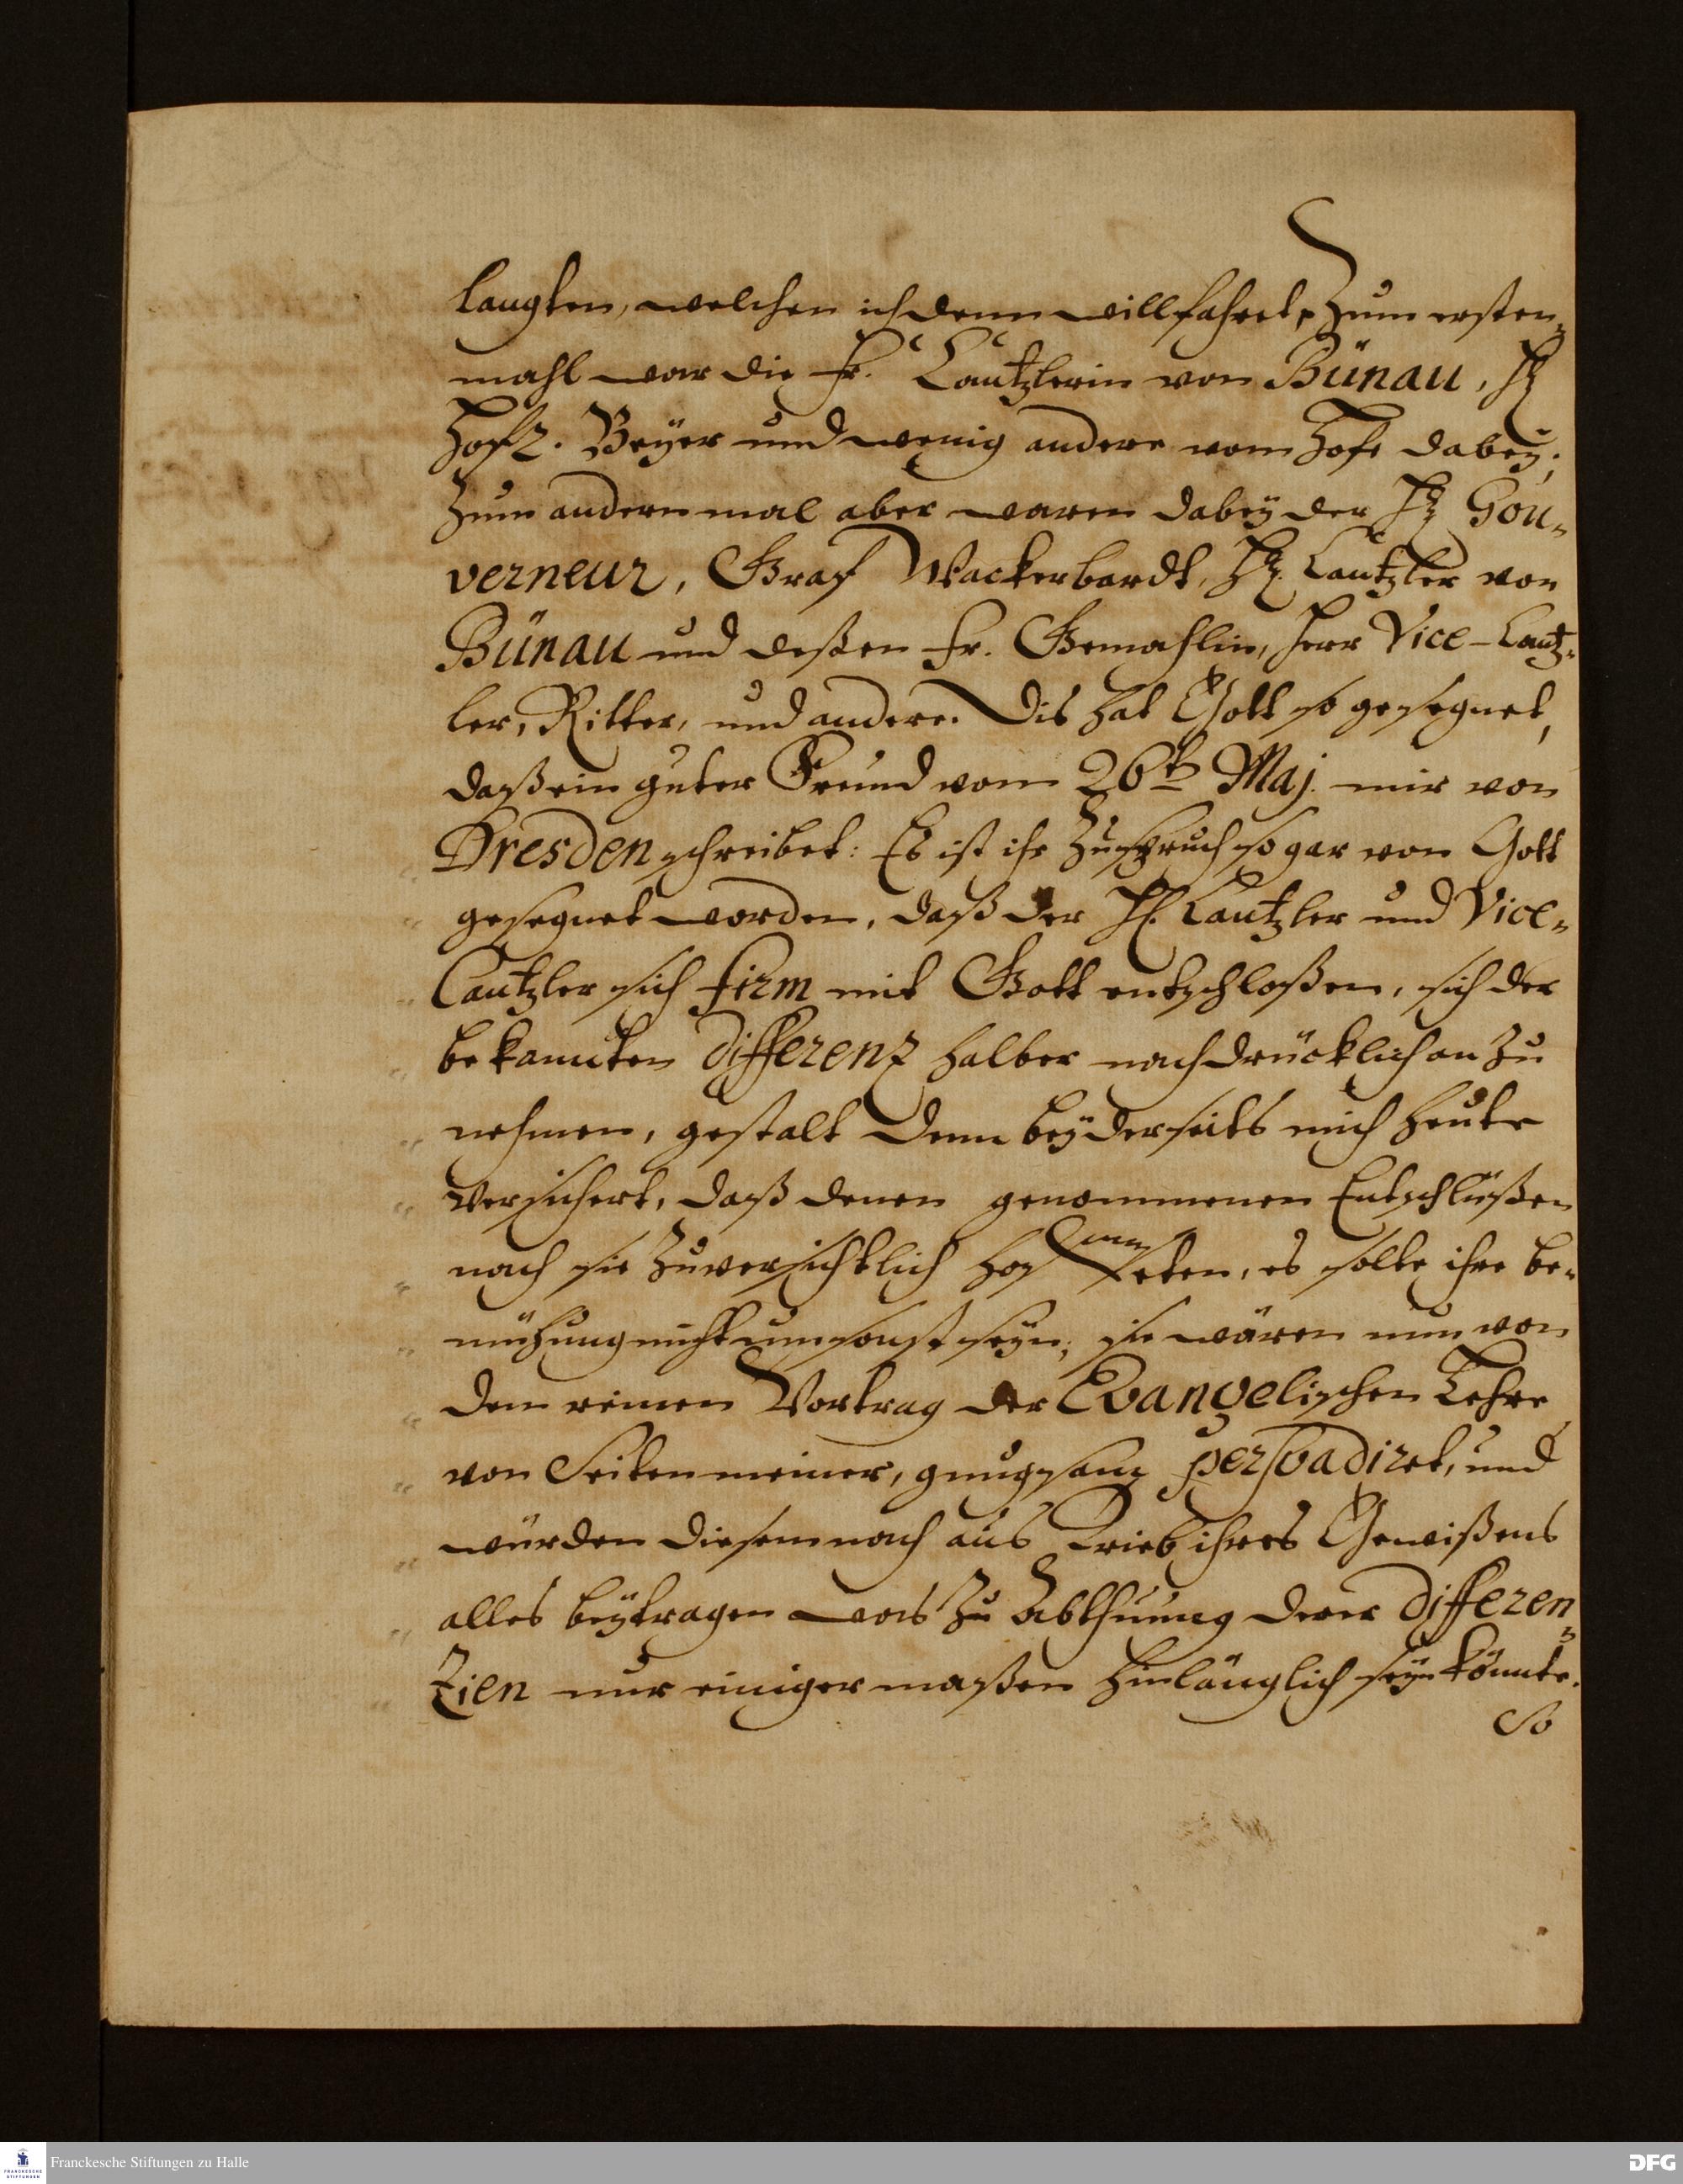 langten, welchen ich denn willfahrete. Zum ersten„
mahl war die Fr. Cantzlerin von Bünau, H.
Hofr. Beyer und wenig andere vom Hofe dabey;
Zum andern mal aber waren dabey der H. Gou„
verneur, Graf Wackerbardt, H. Cantzler von
Bünau und deßen Fr. Gemahlin, Herr Vice-Cantz„
ler, Ritter, und andere. Dis hat Gott so gesegnet,
daß ein guter Freund vom 26t. Maj. mir von
Dresden schreibet: Es ist ihr Zuspruch so gar von Gott
„ gesegnet worden, daß der H. Cantzler und Vice„
„ Cantzler sich firm mit Gott entschloßen, sich der
„ bekannten differenz halber nachdrücklich an zu
„ nehmen, gestalt denn beyderseits mich heute
„ versichert, daß denen genommenen Entschlüßen
„ nach sie zuversichtlich hoffeten, es solte ihre be„
„ mühung nicht umsonst seyn; sie wären nun von
„ dem reinen Vortrag der Evangelischen Lehre
„ von Seiten meiner, gnugsam persvadiret, und
„ würden diesemnach aus Trieb ihres Gewißens
„ alles beytragen was zu Abthuung derer differen„
„ zien nur einiger maßen hinlänglich seyn könnte.
So
Franckesche Stiftungen zu Halle
FRANCKESCHE STIFTUNGEN
DFG